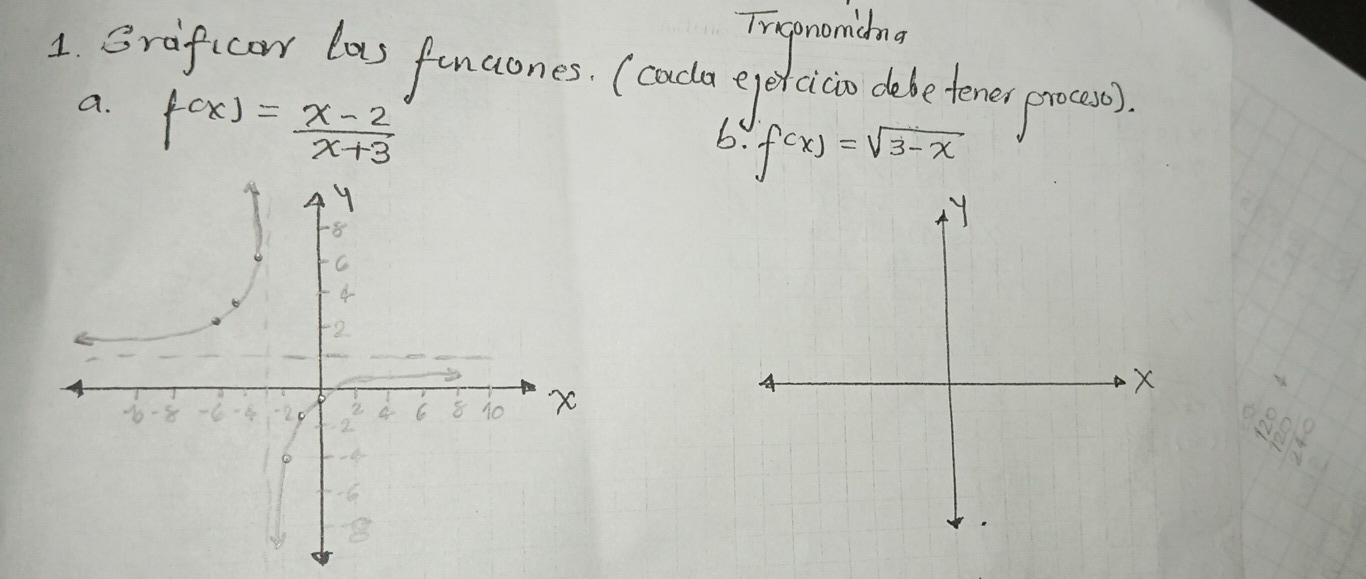 Trigonométria
1. Gráficar las funciones. (cada ejercicio debe tener proceso).
a. f(x) = x - 2 / x + 3
b. f(x) = √3 - x
Y
8
6
4
2
-8 -6 -4 -2 2 4 6 8 10 X
2
-4
-6
8
Y
X
120
120
240